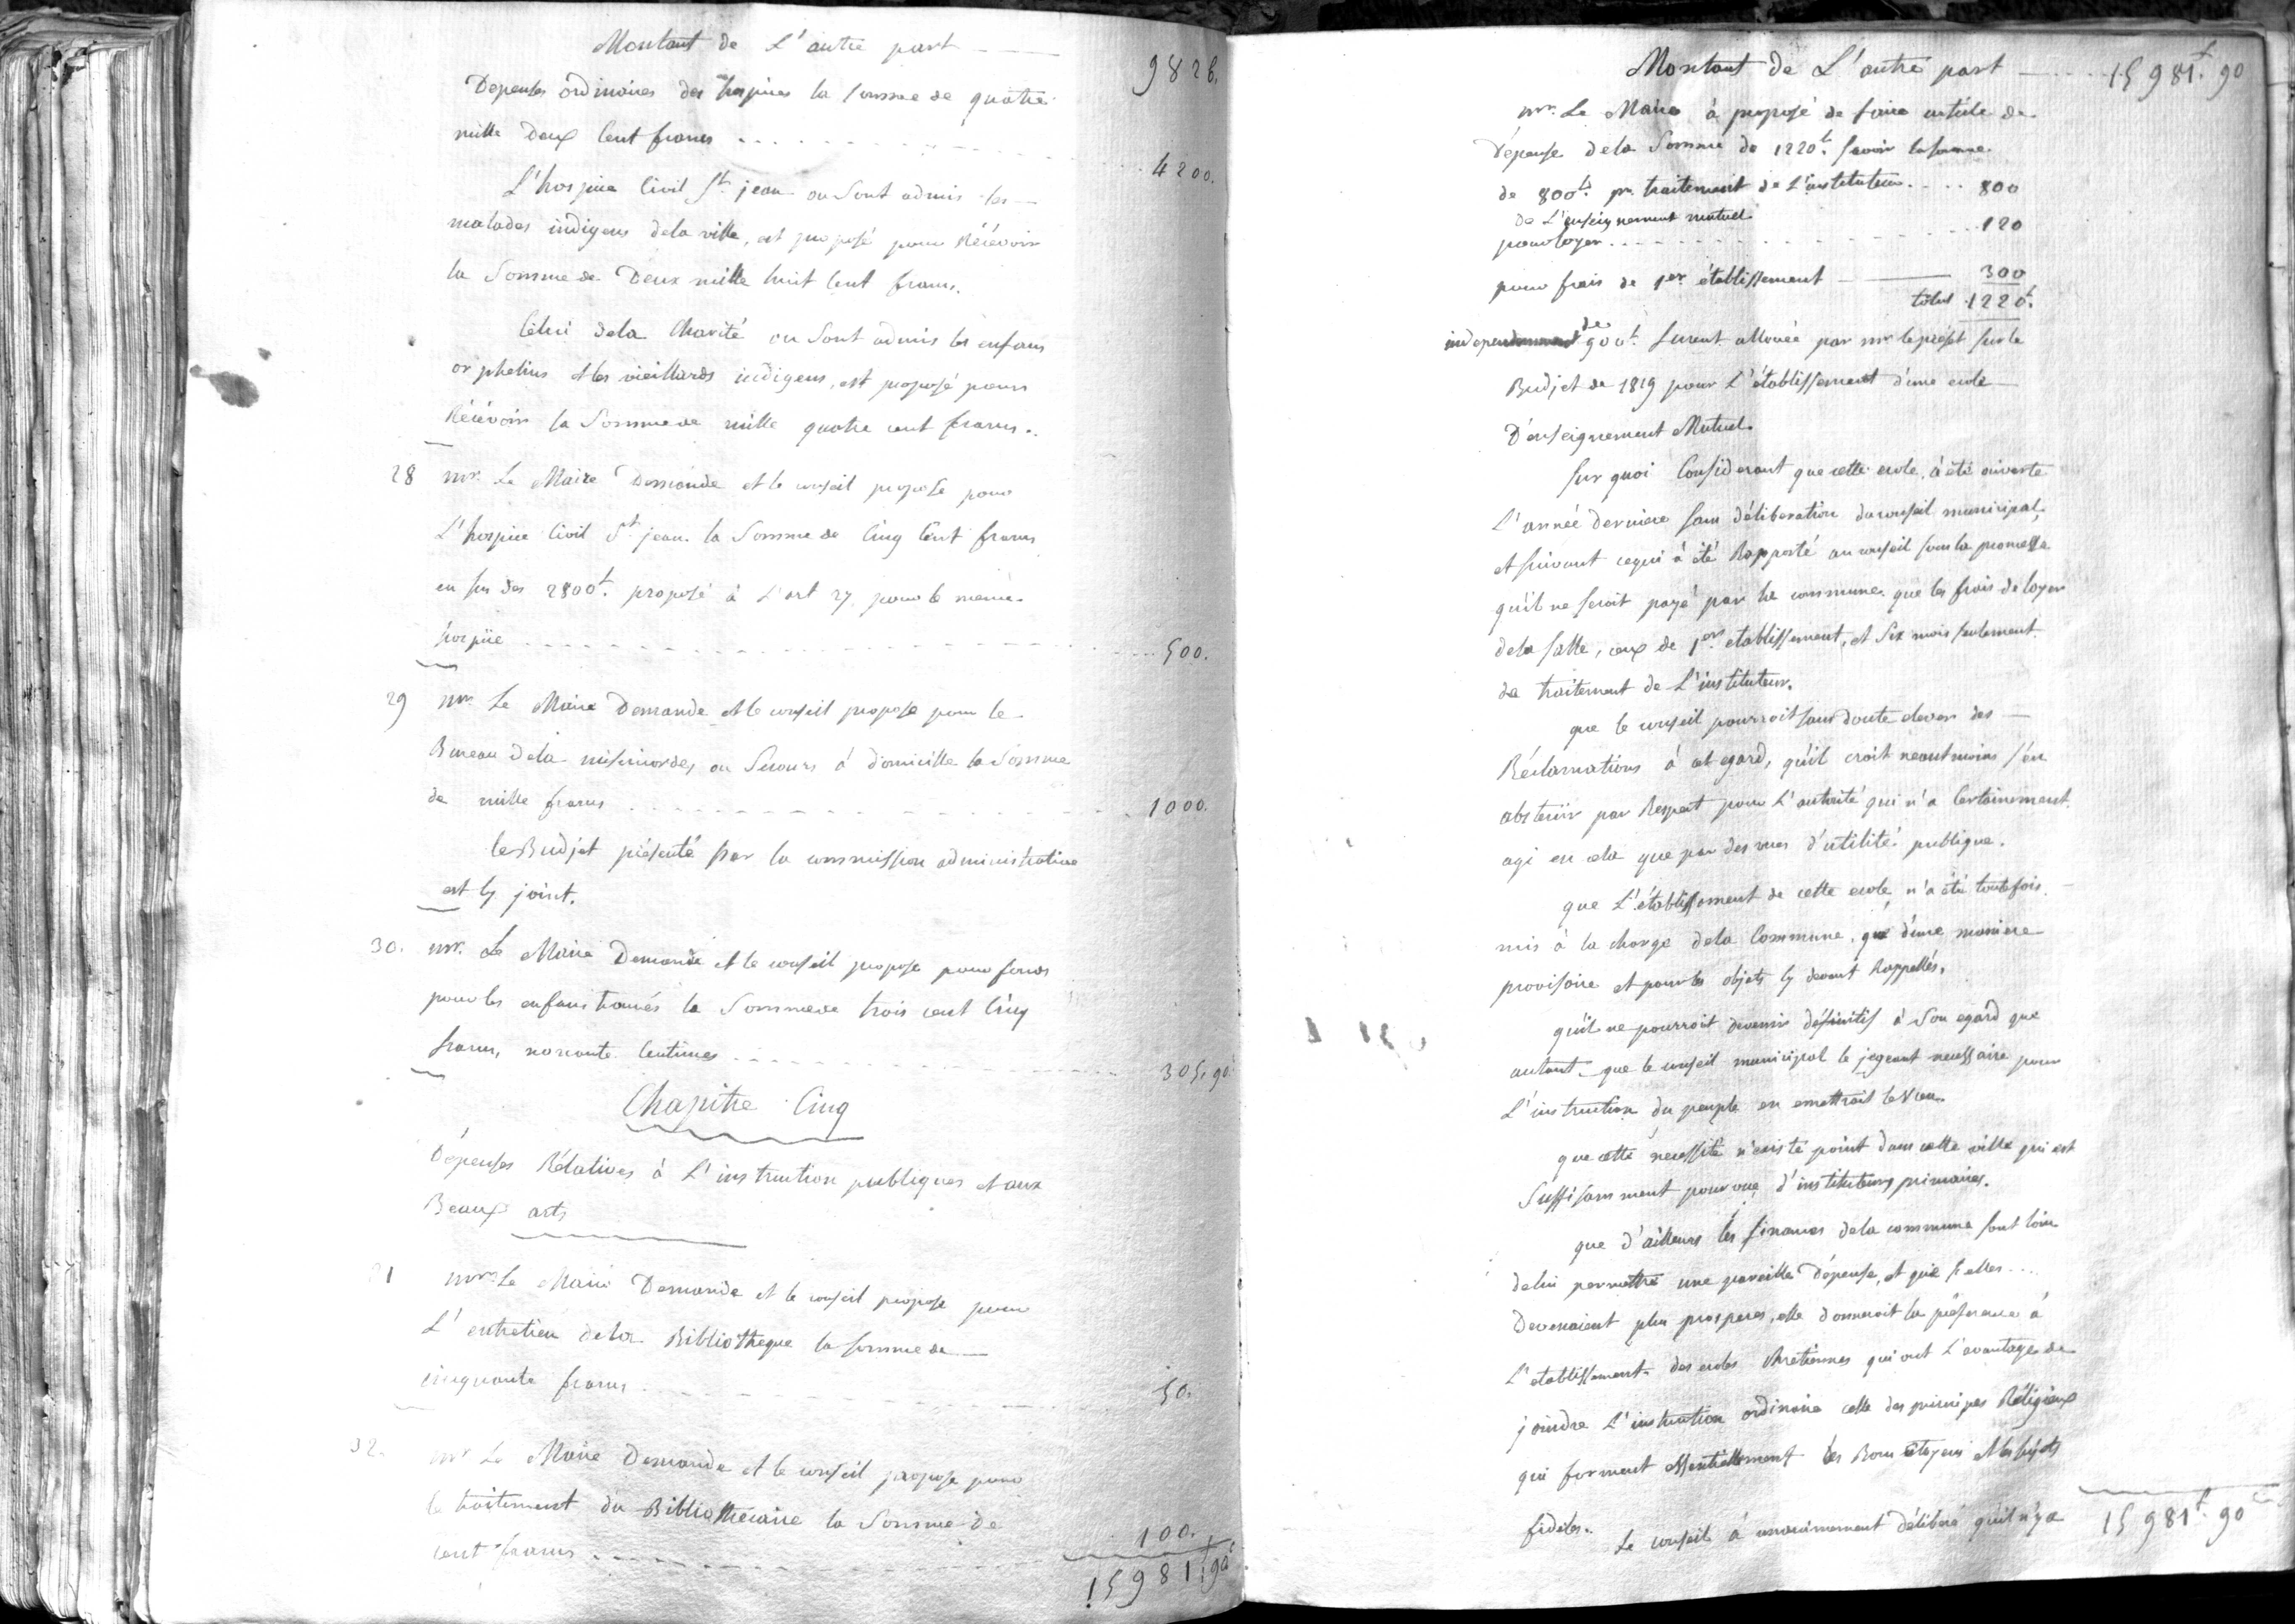 Montant de L'autre part
9826.
Dépenses ordinaires des hospices la somme de quatre
mille Deux Cent francs . . . 4200.
L'hospice Civil St. jean ou Sont admis les
malades indigens dela ville, est proposé pour Récévoir
la Somme de Deux mille huit Cent francs.
Célui dela Charité ou Sont admis les enfans
orphelins et les vieillards indigens, est proposé pour
Récévoir la Somme de mille quatre cent francs.
28 mr. Le Maire Demande et le conseil propose pour
L'hospice Civil St. jean la Somme de Cinq Cent francs
en sus des 2800f. proposé à L'art 27 pour le même
hospice . . . 500.
29 mr. Le Maire Demande et le conseil propose pour le
Bureau dela miséricorde, ou Secours à domicille la Somme
de mille francs . . . 1000.
le Budjet présenté par la commission administrative
est cy joint.
30. mr. Le Maire Demande et le conseil propose pour
pour les enfans trouvés la Somme de trois cent Cinq
francs, nonante Centimes . . . 305,90
Chapitre Cinq
Dépenses Rélatives à L'instruction publiques et aux
Beaux arts
31 mr. Le Maire Demande et le conseil propose pour
L'entretien dela Bibliothèque la somme de
cinquante francs . . . 50.
32. mr Le Maire Demande et le conseil propose pour
le traitement du Bibliothécaire la Somme de
cent francs . . . 100.
15981f.90c
Montant de L'autre part . . . 15981f.90
mr. Le Maire à proposé de faire article de
Dépense dela Somme de 1220f. savoir la somme
de 800f. pr. traitement de L'instituteur . . . 800
de L'enseignement mutuel
pour loyer . . . 120
pour frais de 1er établissement 300
total 1220f.
de 900f. furent allouée par mr le préfet sur le
Budjet de 1819 pour L'établissement d'une ecole
D'enseignement Mutuel.
Sur quoi Considerant que cette ecole, à été ouverte
L'année derniere sans délibération du conseil municipal,
et suivant cequi à été Rapporté au conseil sous la promesse
qu'il ne seroit payé par la commune que les frais de loyer
dela salle, ceux de 1er etablissement, et Six mois seulement
de traitement de L'instituteur.
que le conseil pourroit sans doute elever des
Réclamations à cet egard, qu'il croit neantmoins s'en
abstenir par Respect pour L'autorité qui n'a Certainement
agi en cela que par des vues d'utilité publique.
que L'établissement de cette ecole n'a été toutefois
mis à la charge dela Commune, que d'une manière
provisoire et pour les objets cy devant Rappellés.
qu'il ne pourroit devenir définitif à Son egard que
autant que le conseil municipal le jugeant necessaire pour
L'instruction du peuple en emettroit le Vœu.
que cette necessité n'existe point dans cette ville qui est
Suffisamment pourvue d'instituteurs primaires.
que d'ailleurs les finances dela commune sont loin
delui permettre une pareille Dépense, et que si elles
Devenaient plus prosperes, elle donneroit la préférence à
L'etablissement des ecoles chrétiennes qui ont L'avantage de
joindre L'instruction ordinaire celle des principes Réligieux
qui forment essentiellement les Bons citoyens et les sujets
fidèles.
Le conseil à unanimement délibéré qu'il n'y a
15981f.90c